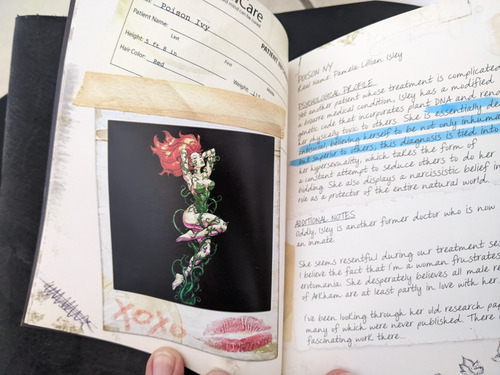 Care
Poison Ivy
Patient Name:
Last
First
Height: 5 ft 8 in
Hair Color: Red
Weight:
PATIENT
XOXO
POISON IVY
Real name: Pamela Lillian Isley
PSYCHOLOGICAL PROFILE
Yet another patient whose treatment is complicated
a bizarre medical condition, Isley has a modified
genetic code that incorporates plant DNA and rend
her physically toxic to others. She is essentially de
believing herself to be not only inhuma
but superior to others, this diagnosis is tied into
her hypersexuality, which takes the form of
a constant attempt to seduce others to do her
bidding. She also displays a narcissistic belief in
role as a protector of the entire natural world.
ADDITIONAL NOTES
Oddly, Isley is another former doctor who is now
an inmate.
She seems resentful during our treatment se
I believe the fact that I'm a woman frustrates
erotomania. She desperately believes all male
of Arkham are at least partly in love with her.
I've been looking through her old research pap
many of which were never published. There i
fascinating work there...